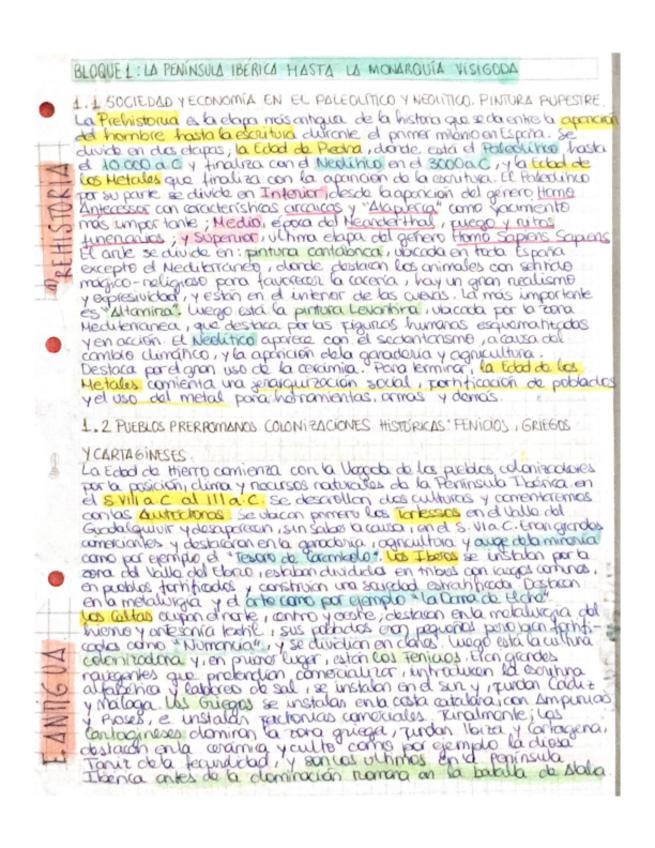 BLOQUE 1: LA PENÍNSULA IBÉRICA HASTA LA MONARQUÍA VISIGODA
1.1 SOCIEDAD Y ECONOMÍA EN EL PALEOLÍTICO Y NEOLÍTICO. PINTURA RUPESTRE.
La Prehistoria es la etapa más antigua de la historia que se da entre la aparición
del hombre hasta la escritura durante el primer milenio en España. Se
divide en dos etapas; la Edad de Piedra, donde está el Paleolítico, hasta
el 10.000 a.C y finaliza con el Neolítico en el 3000 a.C, y la Edad de
los Metales que finaliza con la aparición de la escritura. El Paleolítico
por su parte se divide en Inferior, desde la aparición del género Homo
Antecessor con características arcaicas y "Atapuerca" como yacimiento
más importante; Medio, época del Neanderthal, fuego y ritos
funerarios; y Superior, última etapa del género Homo Sapiens Sapiens
El arte se divide en: pintura cantábrica, ubicada en toda España
excepto el Mediterráneo, donde destacan los animales con sentido
mágico-religioso para favorecer la cacería, hay un gran realismo
y expresividad, y están en el interior de las cuevas. La más importante
es "Altamira". Luego está la pintura Levantina, ubicada por la zona
Mediterránea, que destaca por las figuras humanas esquematizadas
y en acción. El Neolítico aparece con el sedentarismo, a causa del
cambio climático, y la aparición de la ganadería y agricultura.
Destaca por el gran uso de la cerámica. Para terminar, la Edad de los
Metales comienza una jerarquización social, fortificación de poblados
y el uso del metal para herramientas, armas y demás.
PREHISTORIA
1.2 PUEBLOS PRERROMANOS COLONIZACIONES HISTÓRICAS: FENICIOS, GRIEGOS
Y CARTAGINESES.
La Edad de Hierro comienza con la llegada de los pueblos colonizadores
por la posición, clima y recursos naturales de la Península Ibérica en
el S VIII a.C al III a.C. Se desarrollan dos culturas y comentaremos
con las Autóctonas. Se ubican primero los Tartessos en el Valle del
Guadalquivir y desaparecen, sin saber la causa, en el S. VI a.C. Eran grandes
comerciantes y destacaron en la ganadería, agricultura y auge de la minería
como por ejemplo el "Tesoro de Carambolo". Los Íberos se instalan por la
zona del Valle del Ebro, estaban divididos en tribus con rasgos comunes,
en pueblos fortificados y construían una sociedad estratificada. Destacan
en la metalurgia y el arte como por ejemplo "La Dama de Elche".
Los Celtas ocupan el norte, centro y oeste, destacan en la metalurgia del
hierro y artesanía textil, sus poblados eran pequeños pero bien fortifi-
cados como "Numancia", y se dividían en clanes. Luego está la cultura
colonizadora y, en primer lugar, están los Fenicios. Eran grandes
navegantes que pretendían comercializar, introducen la escritura
alfabética y laboreo de sal, se instalan en el sur y fundan Cádiz
y Málaga. Los Griegos se instalan en la costa catalana, con Ampurias
y Roses, e instalan factorías comerciales. Finalmente; los
Cartagineses dominan la zona griega, fundan Ibiza y Cartagena,
destacan en la cerámica y culto como por ejemplo la diosa
Tanit de la fecundidad, y son los últimos en la Península
Ibérica antes de la dominación romana en la batalla de
E. ANTIGUA